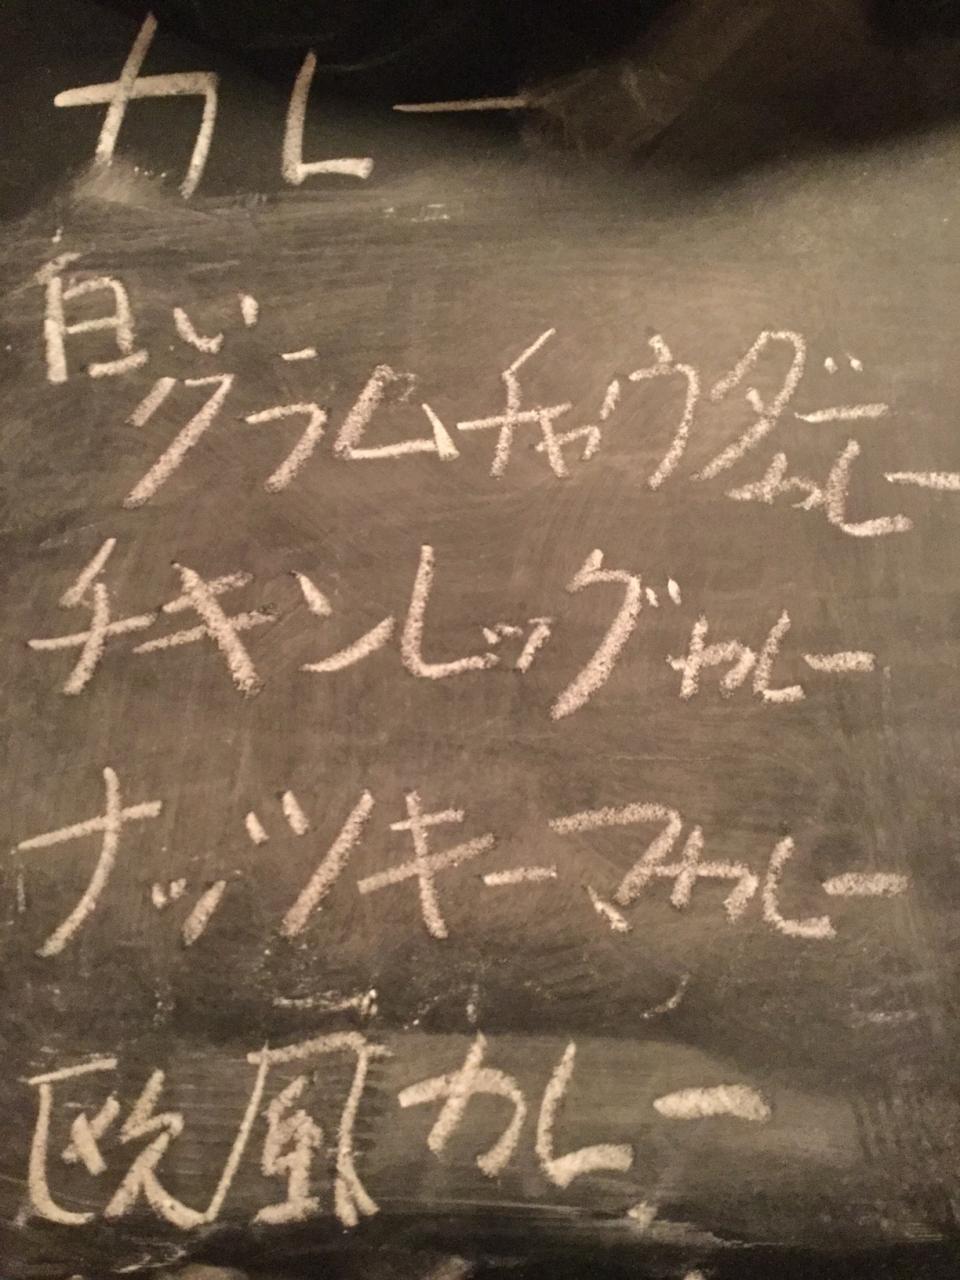 カレー
白い
クラムチャウダーカレー
チキンレッグカレー
ナッツキーマカレー
欧風カレー